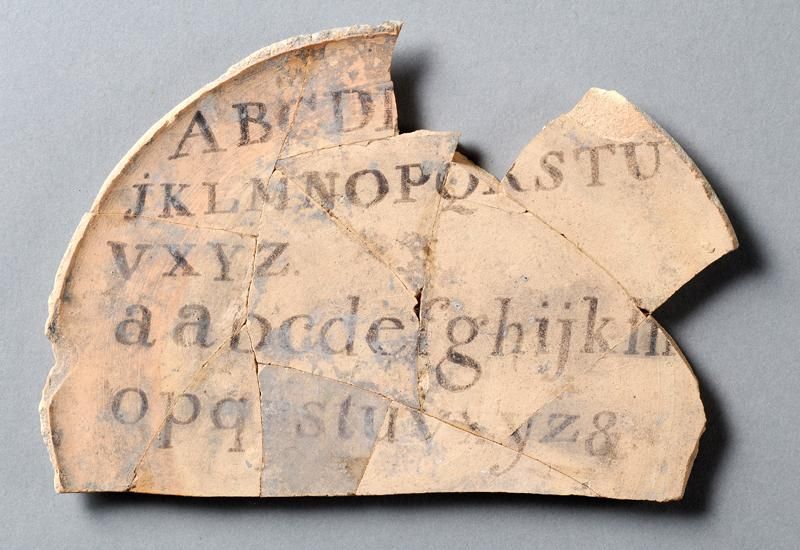 ABCD
jKLMNOPQRSTU
VXYZ.
aabcdefghijklm
opqrstuvxyz&